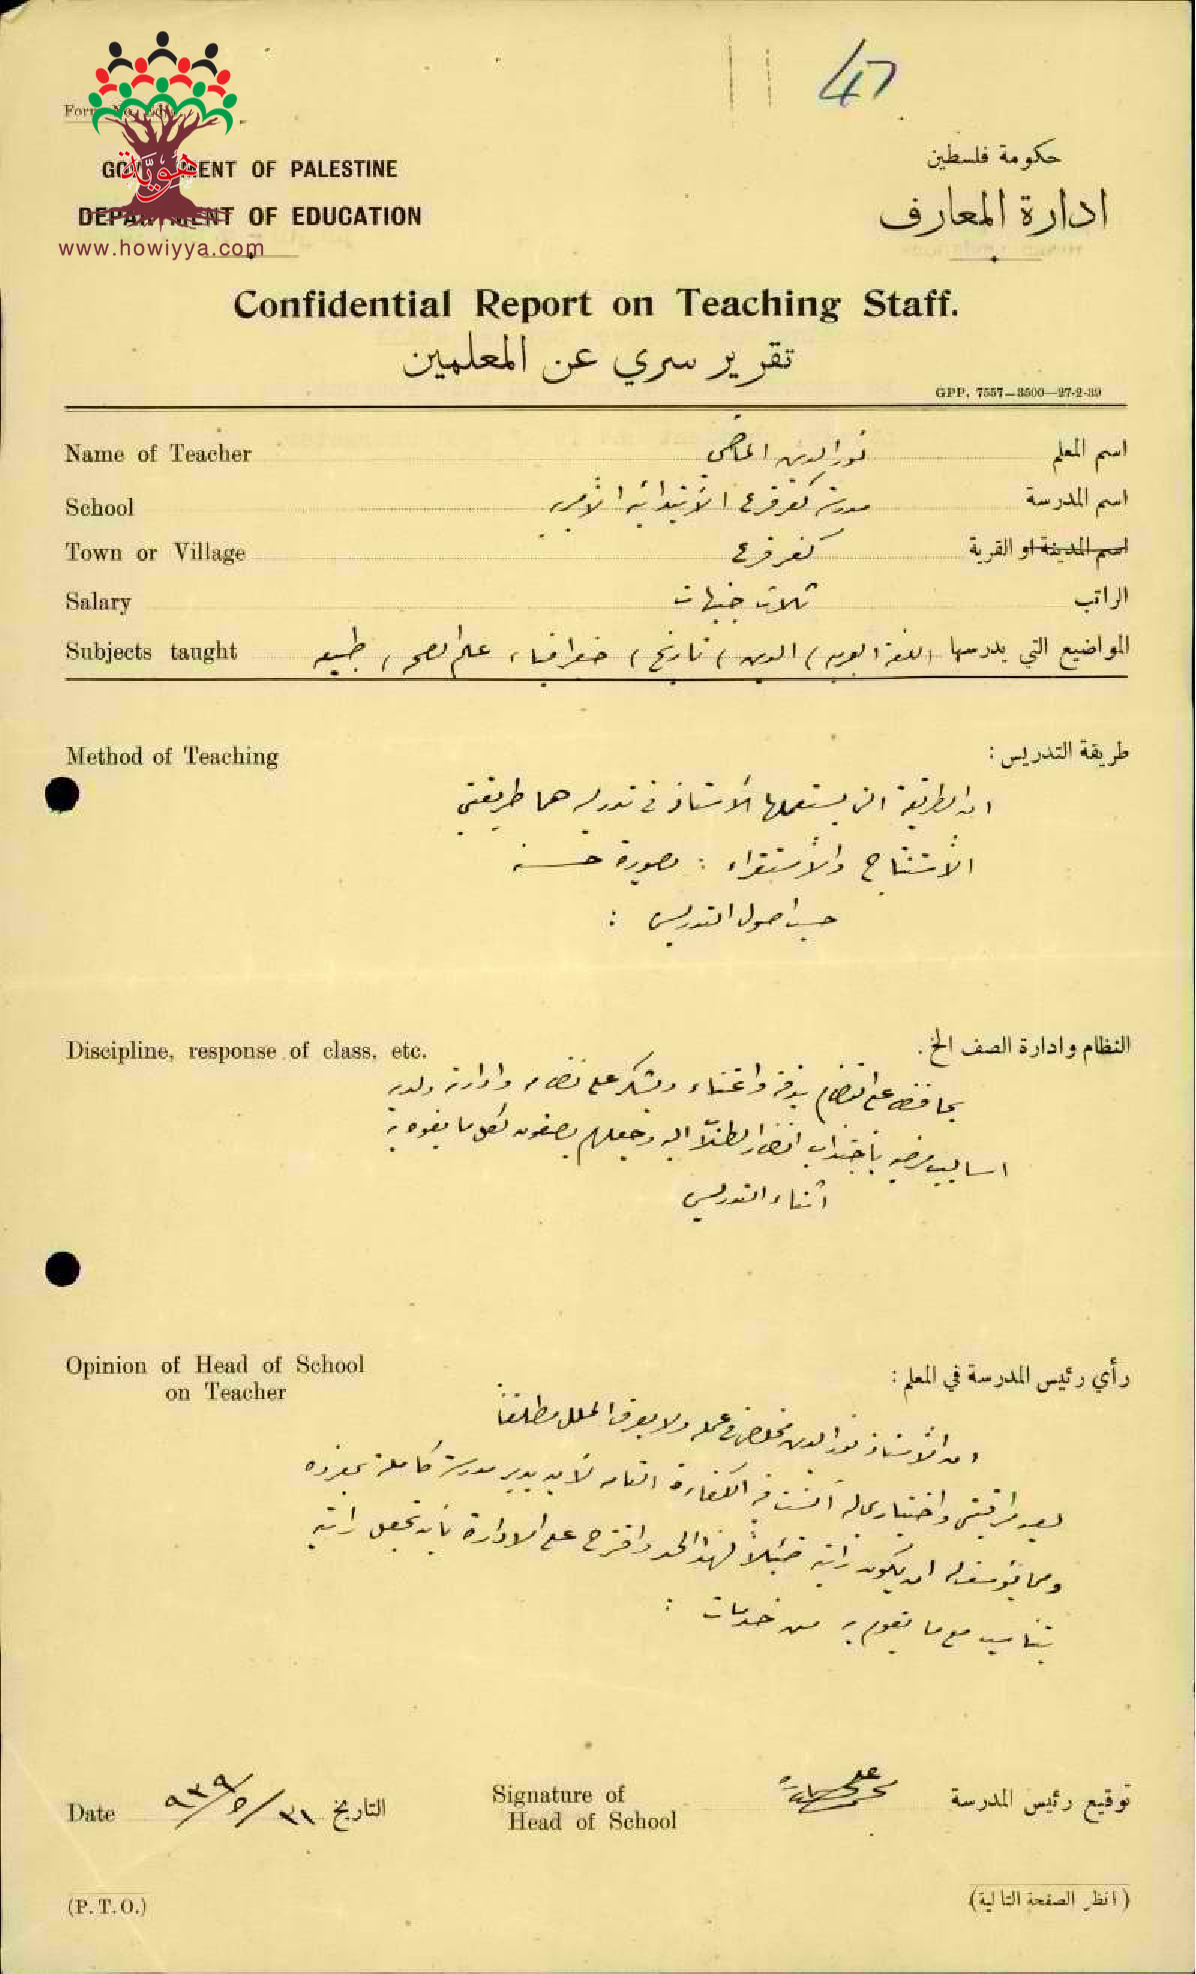 47
Form No. Ed/
هوية
www.howiyya.com
GOVERNMENT OF PALESTINE
حكومة فلسطين
DEPARTMENT OF EDUCATION
ادارة المعارف
Confidential Report on Teaching Staff.
تقرير سري عن المعلمين
GPP. 7557—3500—27-2-39
Name of Teacher نور الدين الماضي اسم المعلم
School مدرسة كفر قرع الأبتدائية الأميرية اسم المدرسة
Town or Village كفر قرع اسم المدينة او القرية
Salary ثلاث جنيهات الراتب
Subjects taught المواضيع التي يدرسها اللغة العربية، الدين، تاريخ، جغرافيا، علم الصحة، طبيعة
Method of Teaching طريقة التدريس :
ان الطريقة التي يستعملها الأستاذ في تدريسه هما طريقتي
الأستنتاج والأستقراء : بصورة حسنة
حسب اصول التدريس :
Discipline, response of class, etc. النظام وادارة الصف الخ .
يحافظ على النظام بدقة واعتناء ويشكر على نظامه وادارته ولديه
اساليب مرضية بأجتذاب انظار الطلاب اليه وجعلهم يصغون لكل ما يفوه به
أثناء التدريس
Opinion of Head of School
on Teacher
رأي رئيس المدرسة في المعلم :
ان الأستاذ نور الدين مخلص في عمله ولا يعرف الملل مطلقاً
بعد مراقبتي واختباري له آنست فيه الكفاءة التامه لأن يدير مدرسة كاملة بمفرده
ومما يؤسف له ان يكون راتبه ضئيلاً لهذا الحد واقترح على الادارة بأن تجعل راتبه
يتناسب مع ما يقوم به من خدمات :
Date ٣١/٥/٩٣٩ التاريخ
Signature of
Head of School
توقيع رئيس المدرسة
(P.T.O.)
(انظر الصفحة التالية)